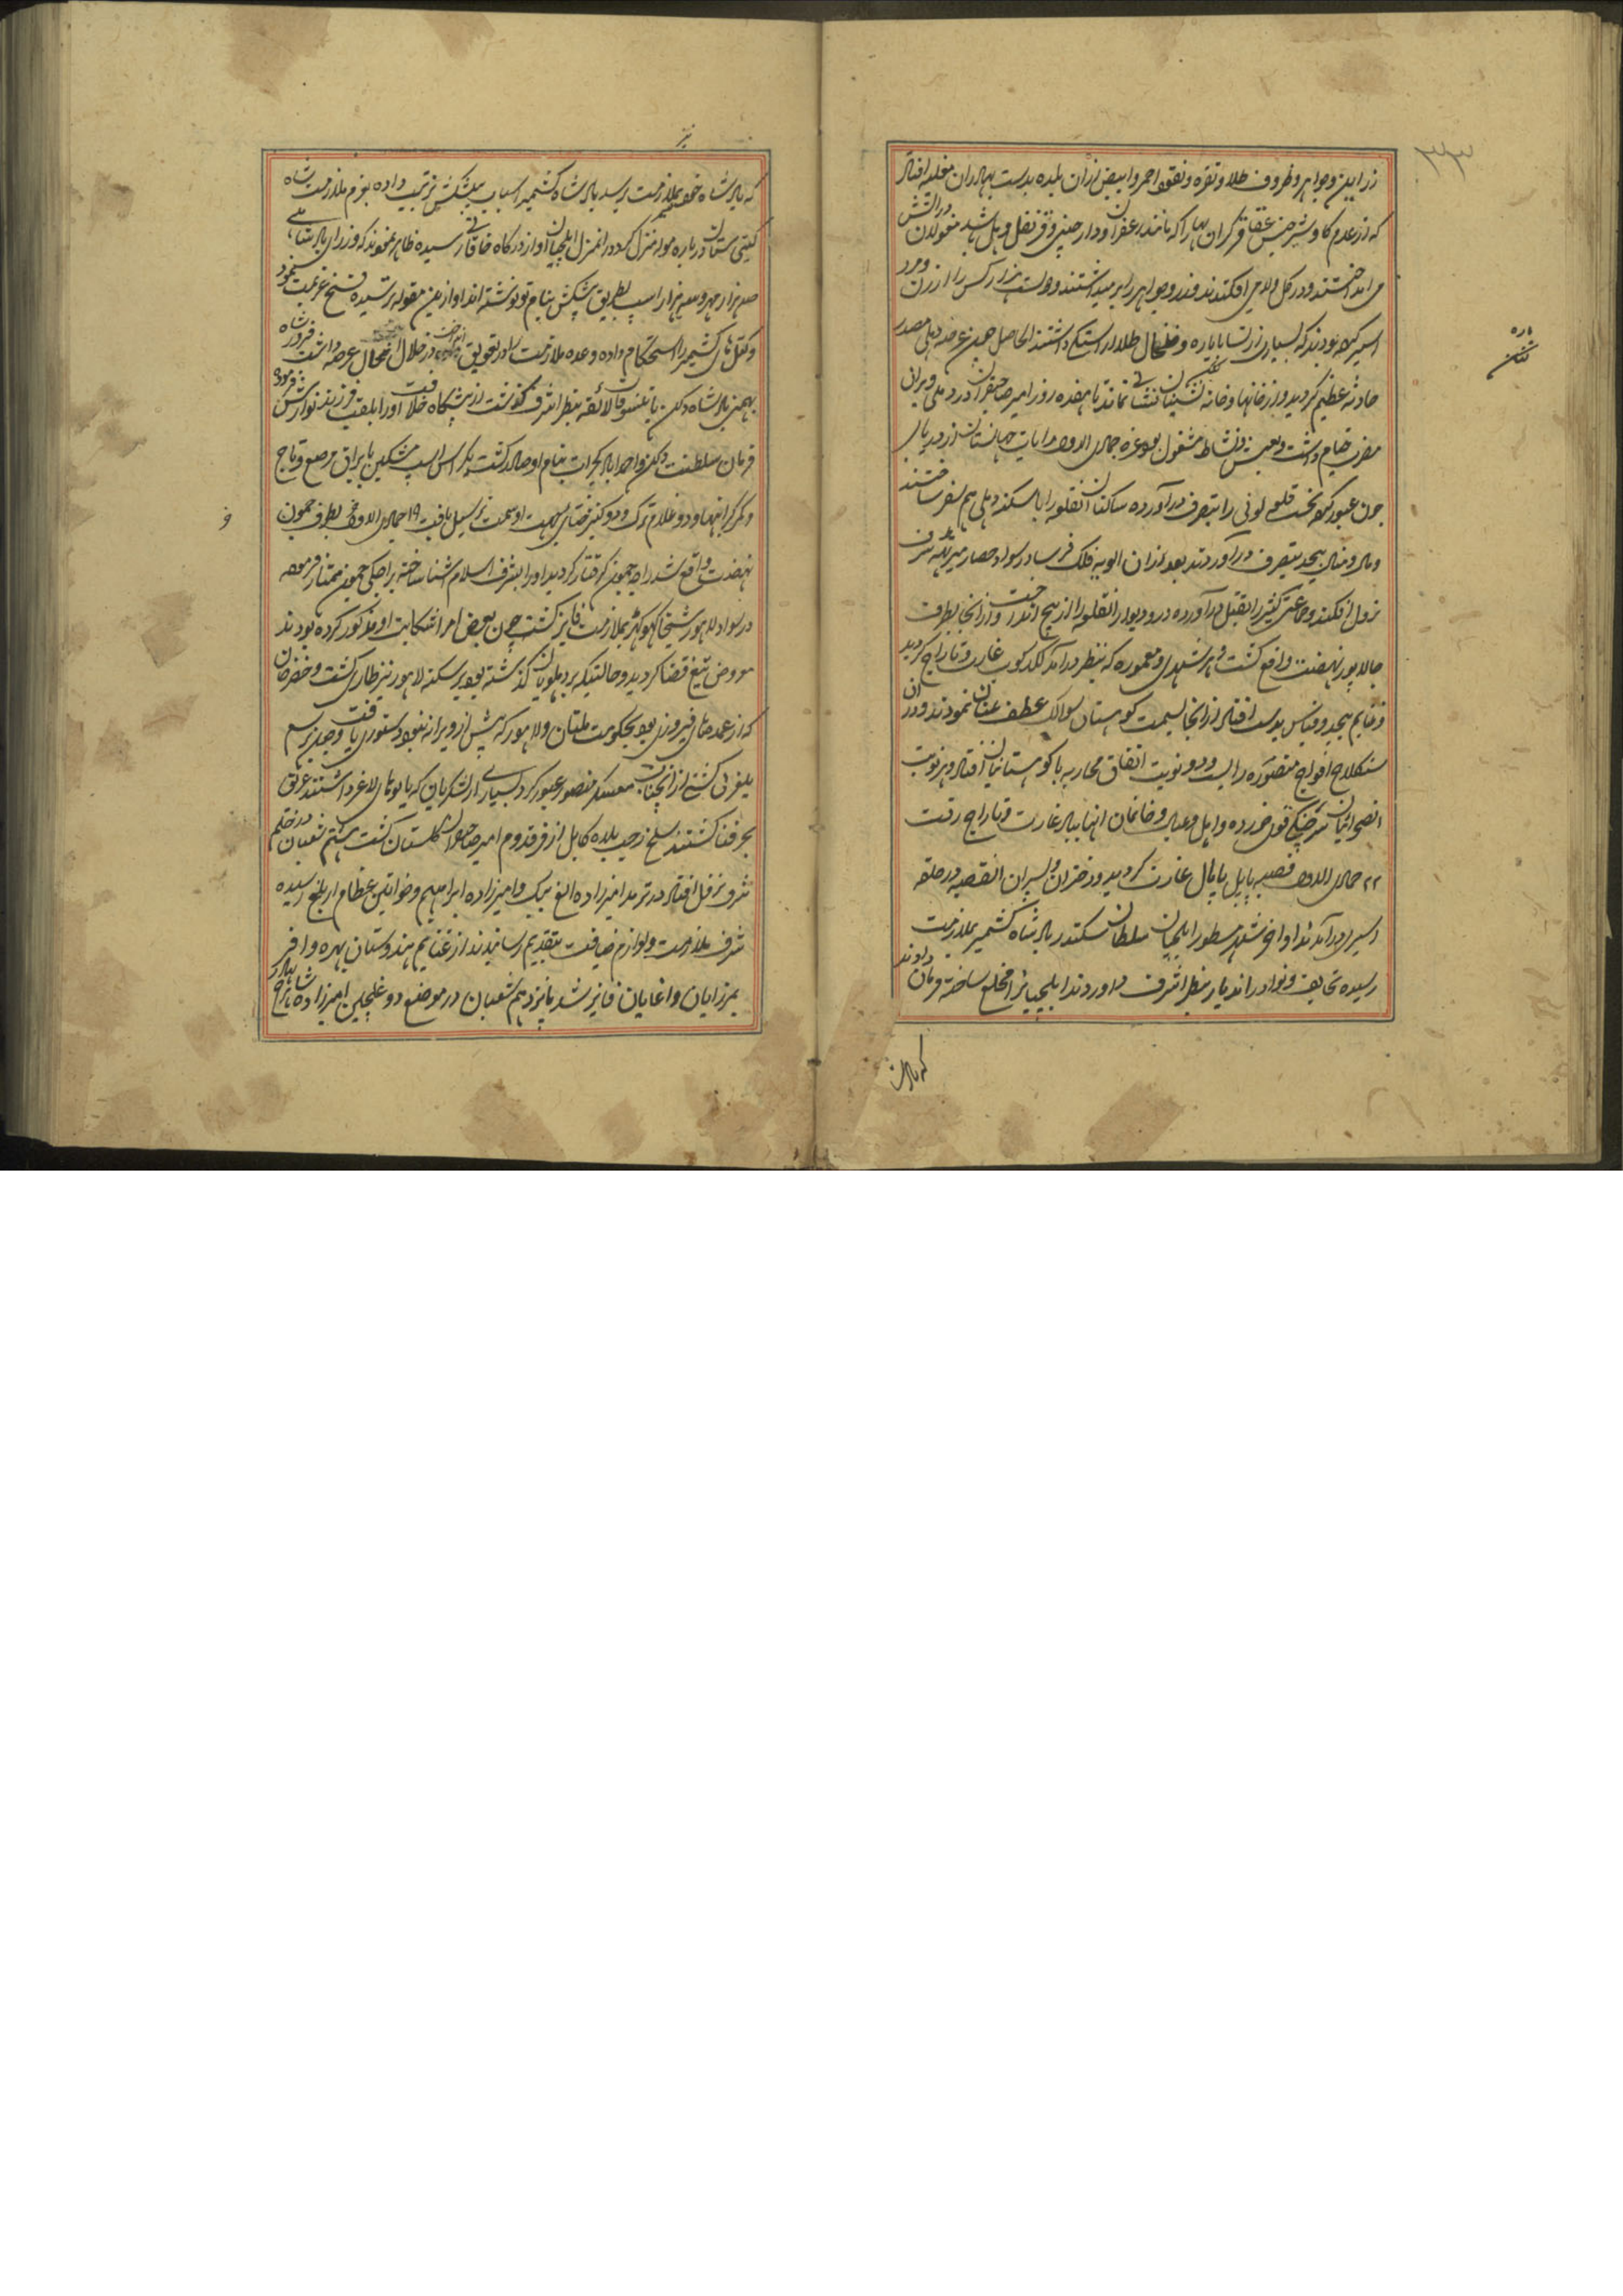 ۲۳۳
زر این و جواهر و ظروف طلا و نقره و نقود احمر و ابیض از آن بلده بدست بهادران مغلیه افتاد
که از عدم کاوش جنس عقاقیر گران بها را که مانند زعفران و دار چینی و قرنفل و هل باشد مغولان در آتش
می انداختند و در کل ولای می افکندند و جواهر را بر میداشتند و دویست هزار کس را از زن و مرد
اسیر کرده بودند که بسیاری از نسا یاره و خلخال طلا داشتند الحاصل چون عرصه دهلی مصدر
حادثه عظیم گردید و از خانها و خانه نشینان نشانی نماند تا هفده روز امیر صاحبقران در دهلی ویرانی
مضرب خیام داشت و بعیش و نشاط مشغول بود غره جمادی الاول رایات جهانستان از دریای
جون عبور کرده نخست قلعه لونی را بتصرف در آورده ساکنان آنقلعه را با سکنه دهلی هم سفر ساختند
و مال و منال بیحد بتصرف در آوردند بعد از آن الویه فلک فرسا در سواد حصار میرته شرف
نزول افکند و جماعتی کثیر را بقتل در آورده در و دیوار آنقلعه را از بیخ انداخت و از آنجا بطرف
جالاپور نهضت واقع گشت و هر شهری و معموره که بنظر در آمد لکدکوب غارت و تاراج گردید
و غنایم بیحد و قیاس بدست افتاد از آنجا بسمت کوهستان سوالک عطف عنان نمودند و در آن
سنگلاخ افواج منصوره را بیست و دو نوبت اتفاق محاربه با کوهستانیان افتاد و هر نوبت
خورده و اهل و عیال و خانمان آنها بباد غارت و تاراج رفت
۲۲ جمادی الاول قصبه بایل پایمال غارت گردید و دختران و پسران آنقصبه در حلقه
اسیری در آمدند اواخر شهر مسطور ایلچیان سلطان سکندر پادشاه کشمیر بملازمت
رسیده تحایف و نوادر آندیار بنظر اشرف در آوردند ایلچیانرا مخلع ساخته فرمان دادند
که پادشاه
که پادشاه خود بملازمت رسد پادشاه کشمیر اسباب پیشکش ترتیب داده بعزم ملازمت شاه
گیتی ستان در باره موله منزل کرد در آنمنزل ایلچیان او از درگاه خاقانی رسیده ظاهر نمودند که وزرای پادشاهی
صد هزار مهر و سه هزار اسب بطریق پیشکش بنام تو نوشته اند او ازین مقوله ترسیده فسخ عزیمت نمود
و کتل های کشمیر را استحکام داده وعده ملازمت را در تعویق انداخت در خلال این حال عرضه داشت فیروز شاه
بهمنی پادشاه دکن با تنسوقات لائقه بنظر اشرف گذشت از پیشگاه خلافت او را بلقب فرزند نوازش فرموده
فرمان سلطنت دکن و اجرا گجرات بنام او صادر گشت و یک راس اسپ مشکین با یراق مرصع و تاج
و کمر گرانبها و دو غلام ترک و دو کنیز ختای بجهت او سمت ترسیل یافت ۱۹ جمادی الاخر بطرف جمون
نهضت واقع شد راجه جمون گرفتار گردید او را بشرف اسلام آشنا ساخته براجگی جمون ممتاز فرمود
در سواد لاهور شیخا کهوکهر بملازمت فایز گشت چون بعرض امرا شکایت او مذکور کرده بودند
معروض تیغ قضا گردید و حالتیکه بر دهلویان گذشته بود بر سکنه لاهور نیز طاری گشت و خضر خان
که از عمدهای فیروزی بود بحکومت ملتان و لاهور که پیش از ویرانه نبود دستوری یافت و جلدی رسم
یلغر آن کشتی از آبخناب معسکر منصور عبور کرد بسیاری از لشکریان که یابوهای لاغر داشتند غریق
بحر فنا گشتند سلخ رجب بلده کابل از فر قدوم امیر صاحبقران گلستان گشت هشتم شعبان در خلم
شرف نزول افتاد در ترمد امیرزاده الغ بیک و امیرزاده ابراهیم و خواتین عظام از بلخ رسیده
شرف ملازمت و لوازم ضیافت بتقدیم رسانیدند از غنایم هندوستان بهره وافر
بمیرزایان و اغایان فایز شد پانزدهم شعبان در موضع دوغلجین امیرزاده شاهرخ بهادر